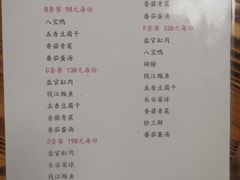 B套餐 98元每份
八宝鸭
五香豆腐干
香菇青菜
番茄蛋汤
C套餐 138元每份
盐官缸肉
钱江鳊鱼
五香豆腐干
香菇青菜
番茄蛋汤
D套餐 198元每份
盐官缸肉
长安宴球
钱江鳊鱼
香菇青菜
番茄蛋汤
F套餐 338元每份
盐官缸肉
八宝鸭
硝鳑
钱江鳊鱼
五香豆腐干
香菇青菜
长安宴球
炒三鲜
番茄蛋汤